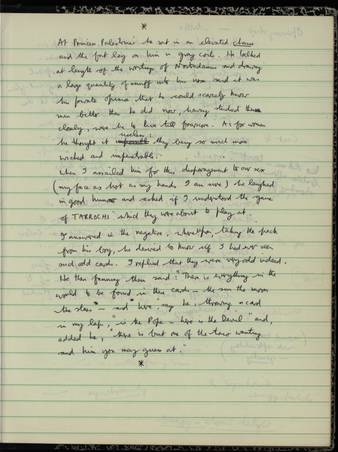 *
At Princess Palestrina's he sat in an elevated chair
and the foot lay on him in gray coils. He talked
at length of the writings of Nostradamus and drawing
a large quantity of snuff into his nose said it was
his private opinion that he could scarcely know
men better than he did now, having studied them
closely, were he to live till forever. As for women
he thought it useless they being so much more
wicked and impenetrable.
When I assailed him for this disparagement to our sex
(my face as hot as my hands I am sure) he laughed
in good humor and asked if I understood the game
of TAROCHI which they were about to play at.
I answered in the negative, whereupon, taking the pack
from his boy, he desired to know if I had not seen
such odd cards. I replied that they were very odd indeed.
He then fanning them said: "There is everything in the
world to be found in these cards - the sun the moon
the stars" - and "here" says he, throwing a card
in my lap, "is the Pope - here is the Devil" and,
added he, "there is but one of the trio wanting
and him you may guess at."
*